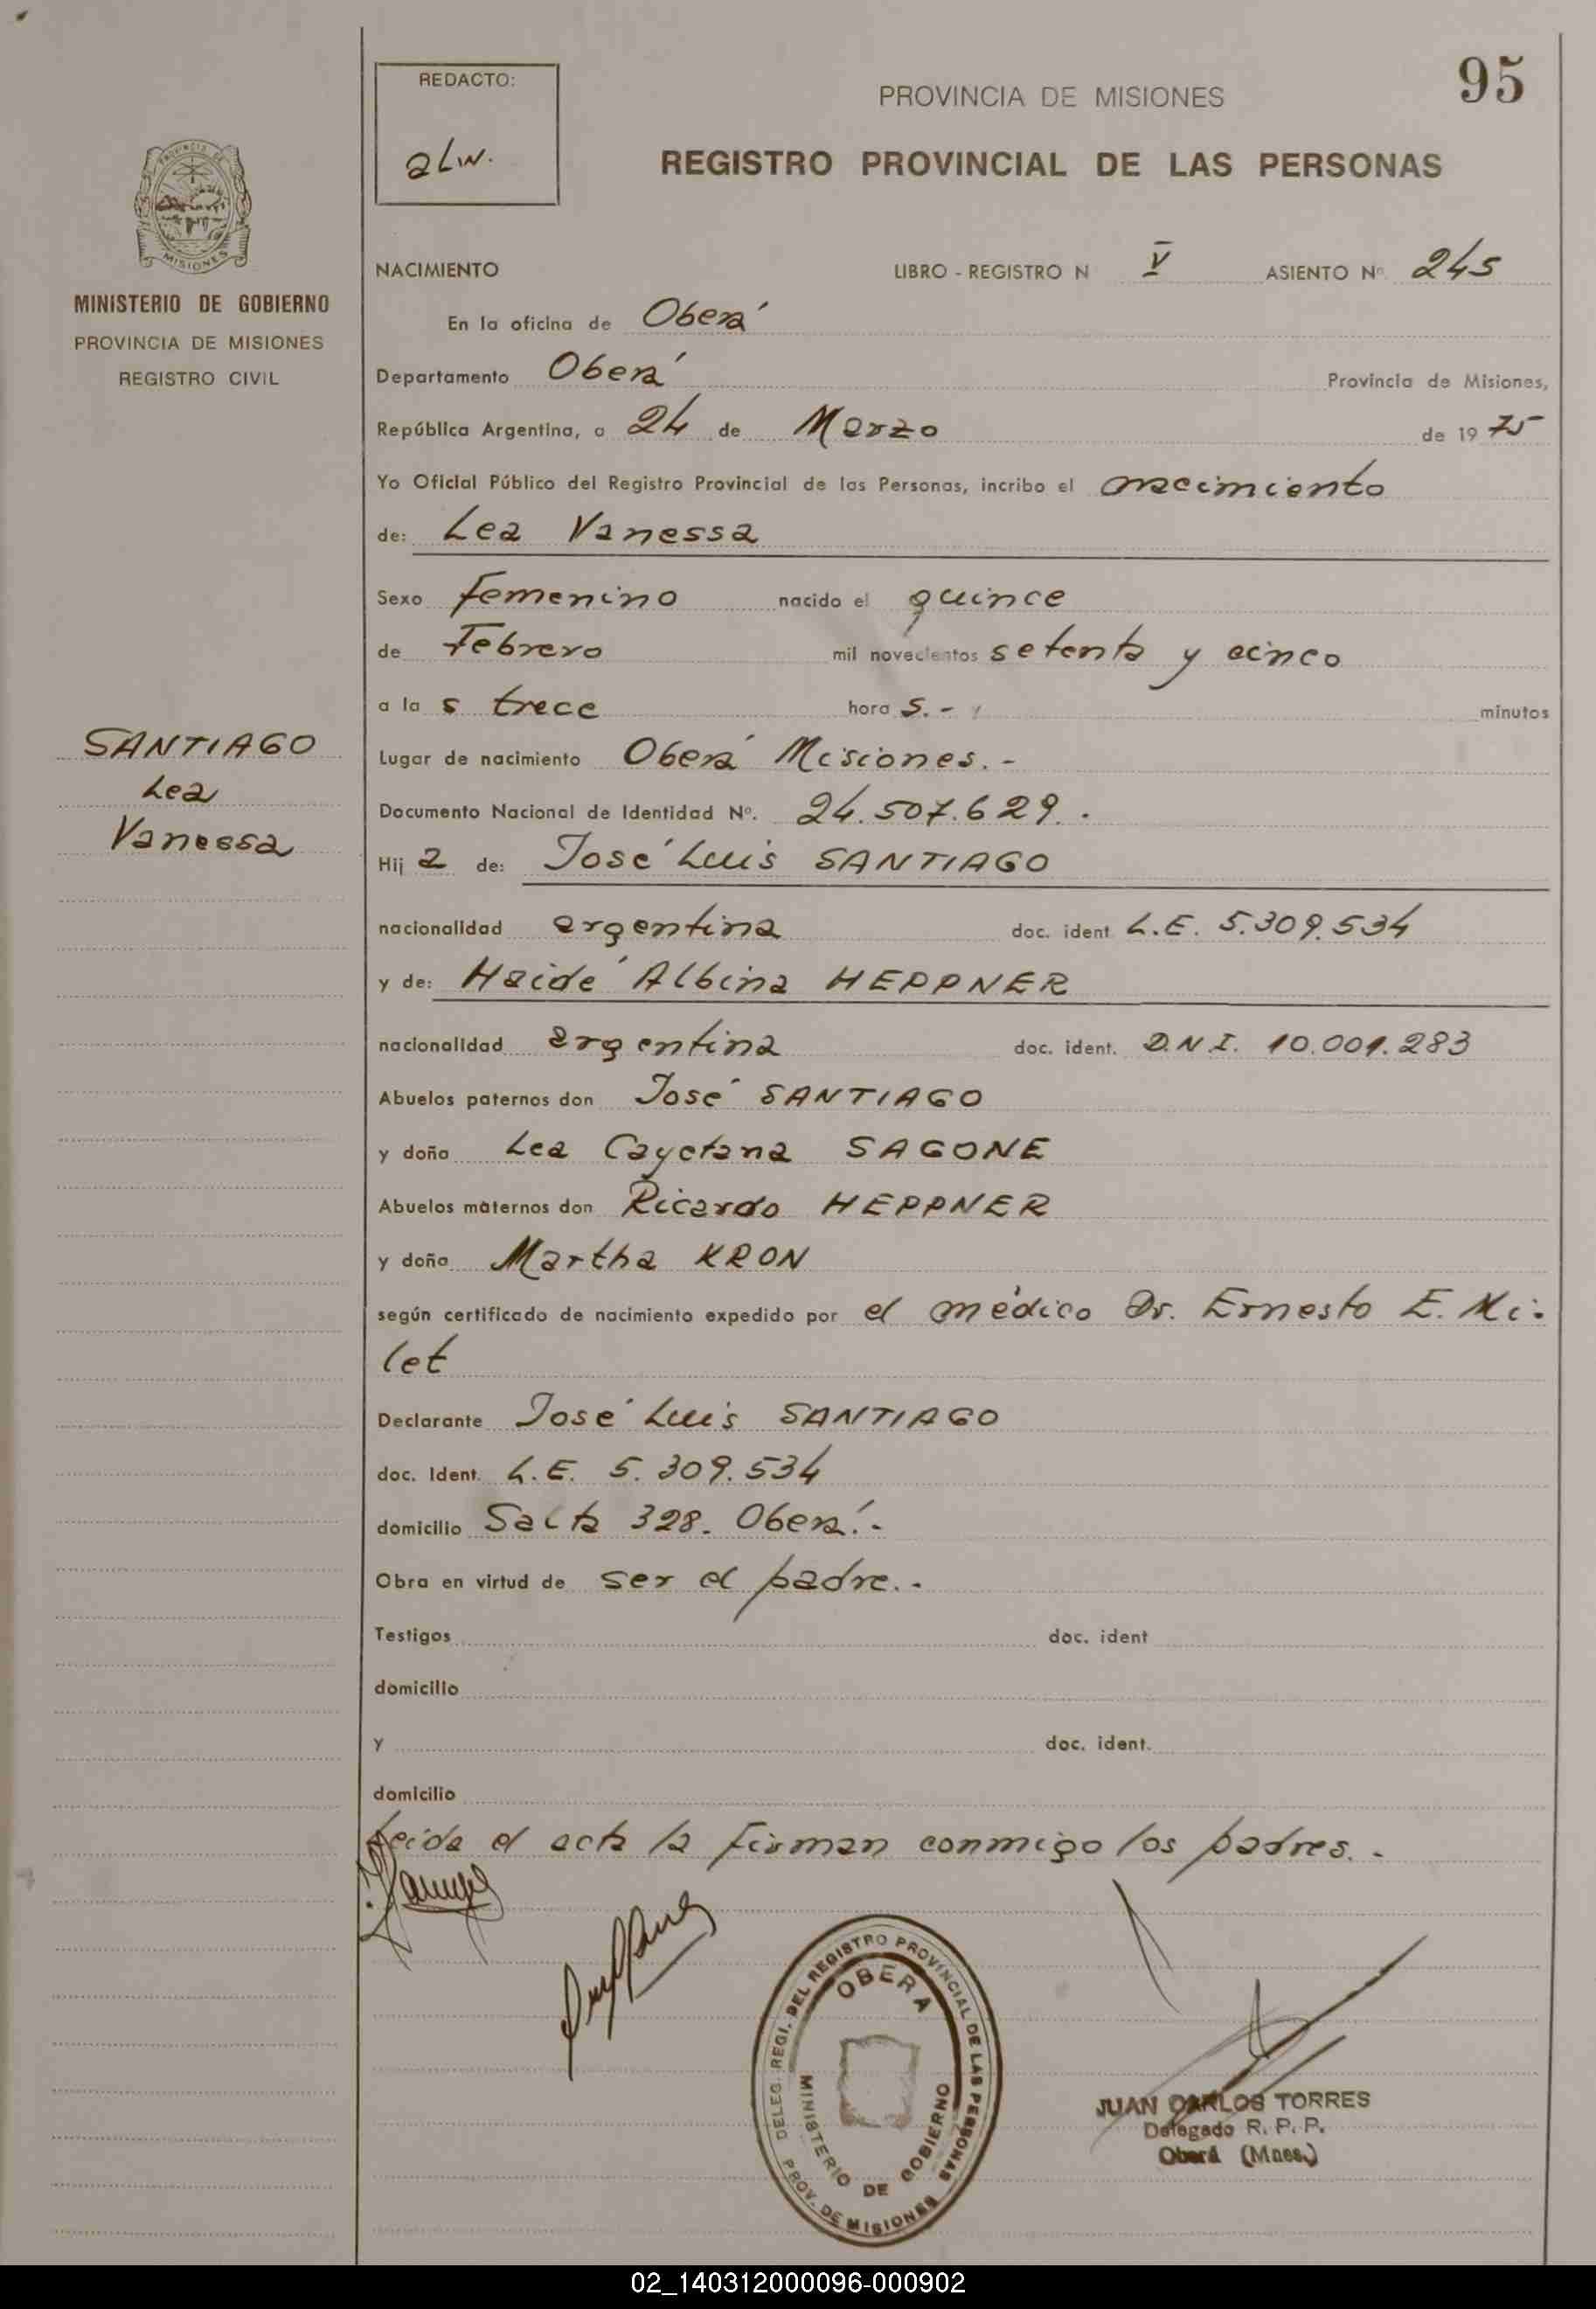 95
REDACTO:
PROVINCIA DE MISIONES
REGISTRO PROVINCIAL DE LAS PERSONAS
PROVINCIA DE
MISIONES
MINISTERIO DE GOBIERNO
PROVINCIA DE MISIONES
REGISTRO CIVIL
NACIMIENTO LIBRO - REGISTRO N V ASIENTO Nº 245
En la oficina de Oberá
Departamento Oberá Provincia de Misiones,
República Argentina, a 24 de Marzo de 19 75
Yo Oficial Público del Registro Provincial de las Personas, incribo el nacimiento
de: Lea Vanessa
Sexo femenino nacido el quince
de Febrero mil novecientos setenta y cinco
a la s trece hora s.- minutos
Lugar de nacimiento Oberá Misiones.-
Documento Nacional de Identidad Nº. 24.507.629.
Hij a de: José Luis SANTIAGO
nacionalidad argentina doc. ident L.E. 5.309.534
y de: Haidé Albina HEPPNER
nacionalidad argentina doc. ident. D.N.I. 10.001.283
Abuelos paternos don José SANTIAGO
y doña Lea Cayetana SAGONE
Abuelos maternos don Ricardo HEPPNER
y doña Martha KRON
según certificado de nacimiento expedido por el médico Dr. Ernesto E. Mi-
let
Declarante José Luis SANTIAGO
doc. Ident. L.E. 5.309.534
domicilio Salta 328. Oberá.-
Obra en virtud de ser el padre.-
Testigos doc. ident
domicilio
y doc. ident.
domicilio
Leida el acta la firman conmigo los padres.-
SANTIAGO
Lea
Vanessa
DELEG. REGI. DEL REGISTRO PROVINCIAL DE LAS PERSONAS
OBERA
MINISTERIO DE GOBIERNO
PROV. DE MISIONES
JUAN CARLOS TORRES
Delegado R. P. P.
Oberá (Mnes.)
02_140312000096-000902